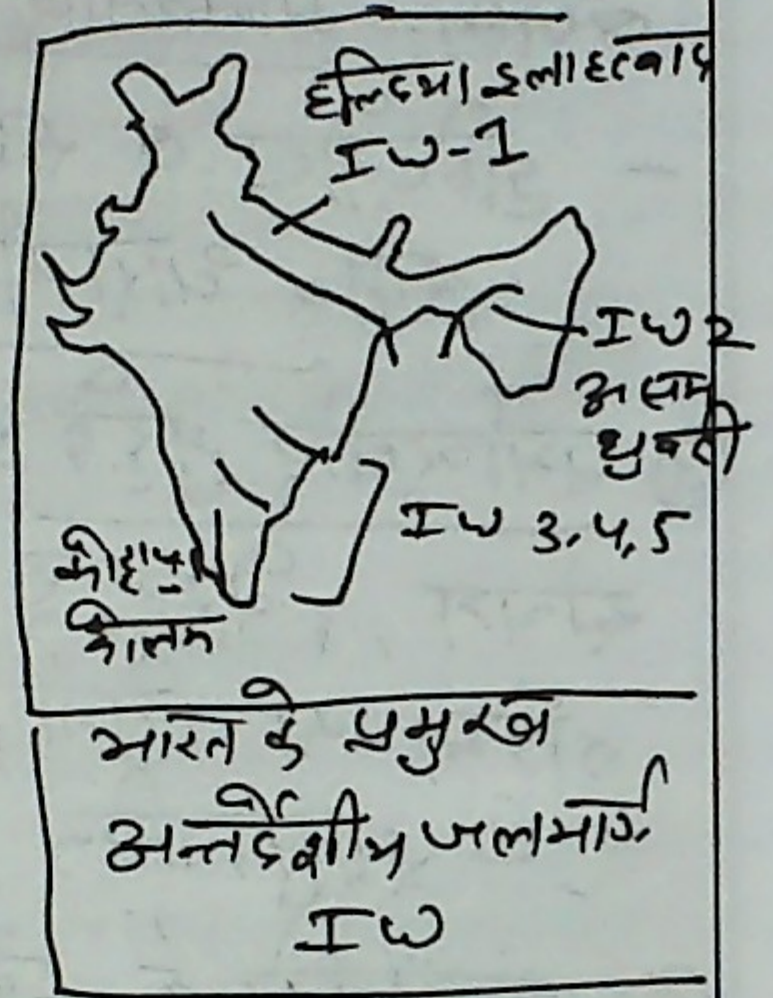 हल्दिया इलाहाबाद
IW-1
IW 2
असम
धुबरी
IW 3,4,5
कोट्टापु
कोलम
भारत के प्रमुख
अन्तर्देशीय जलमार्ग
IW